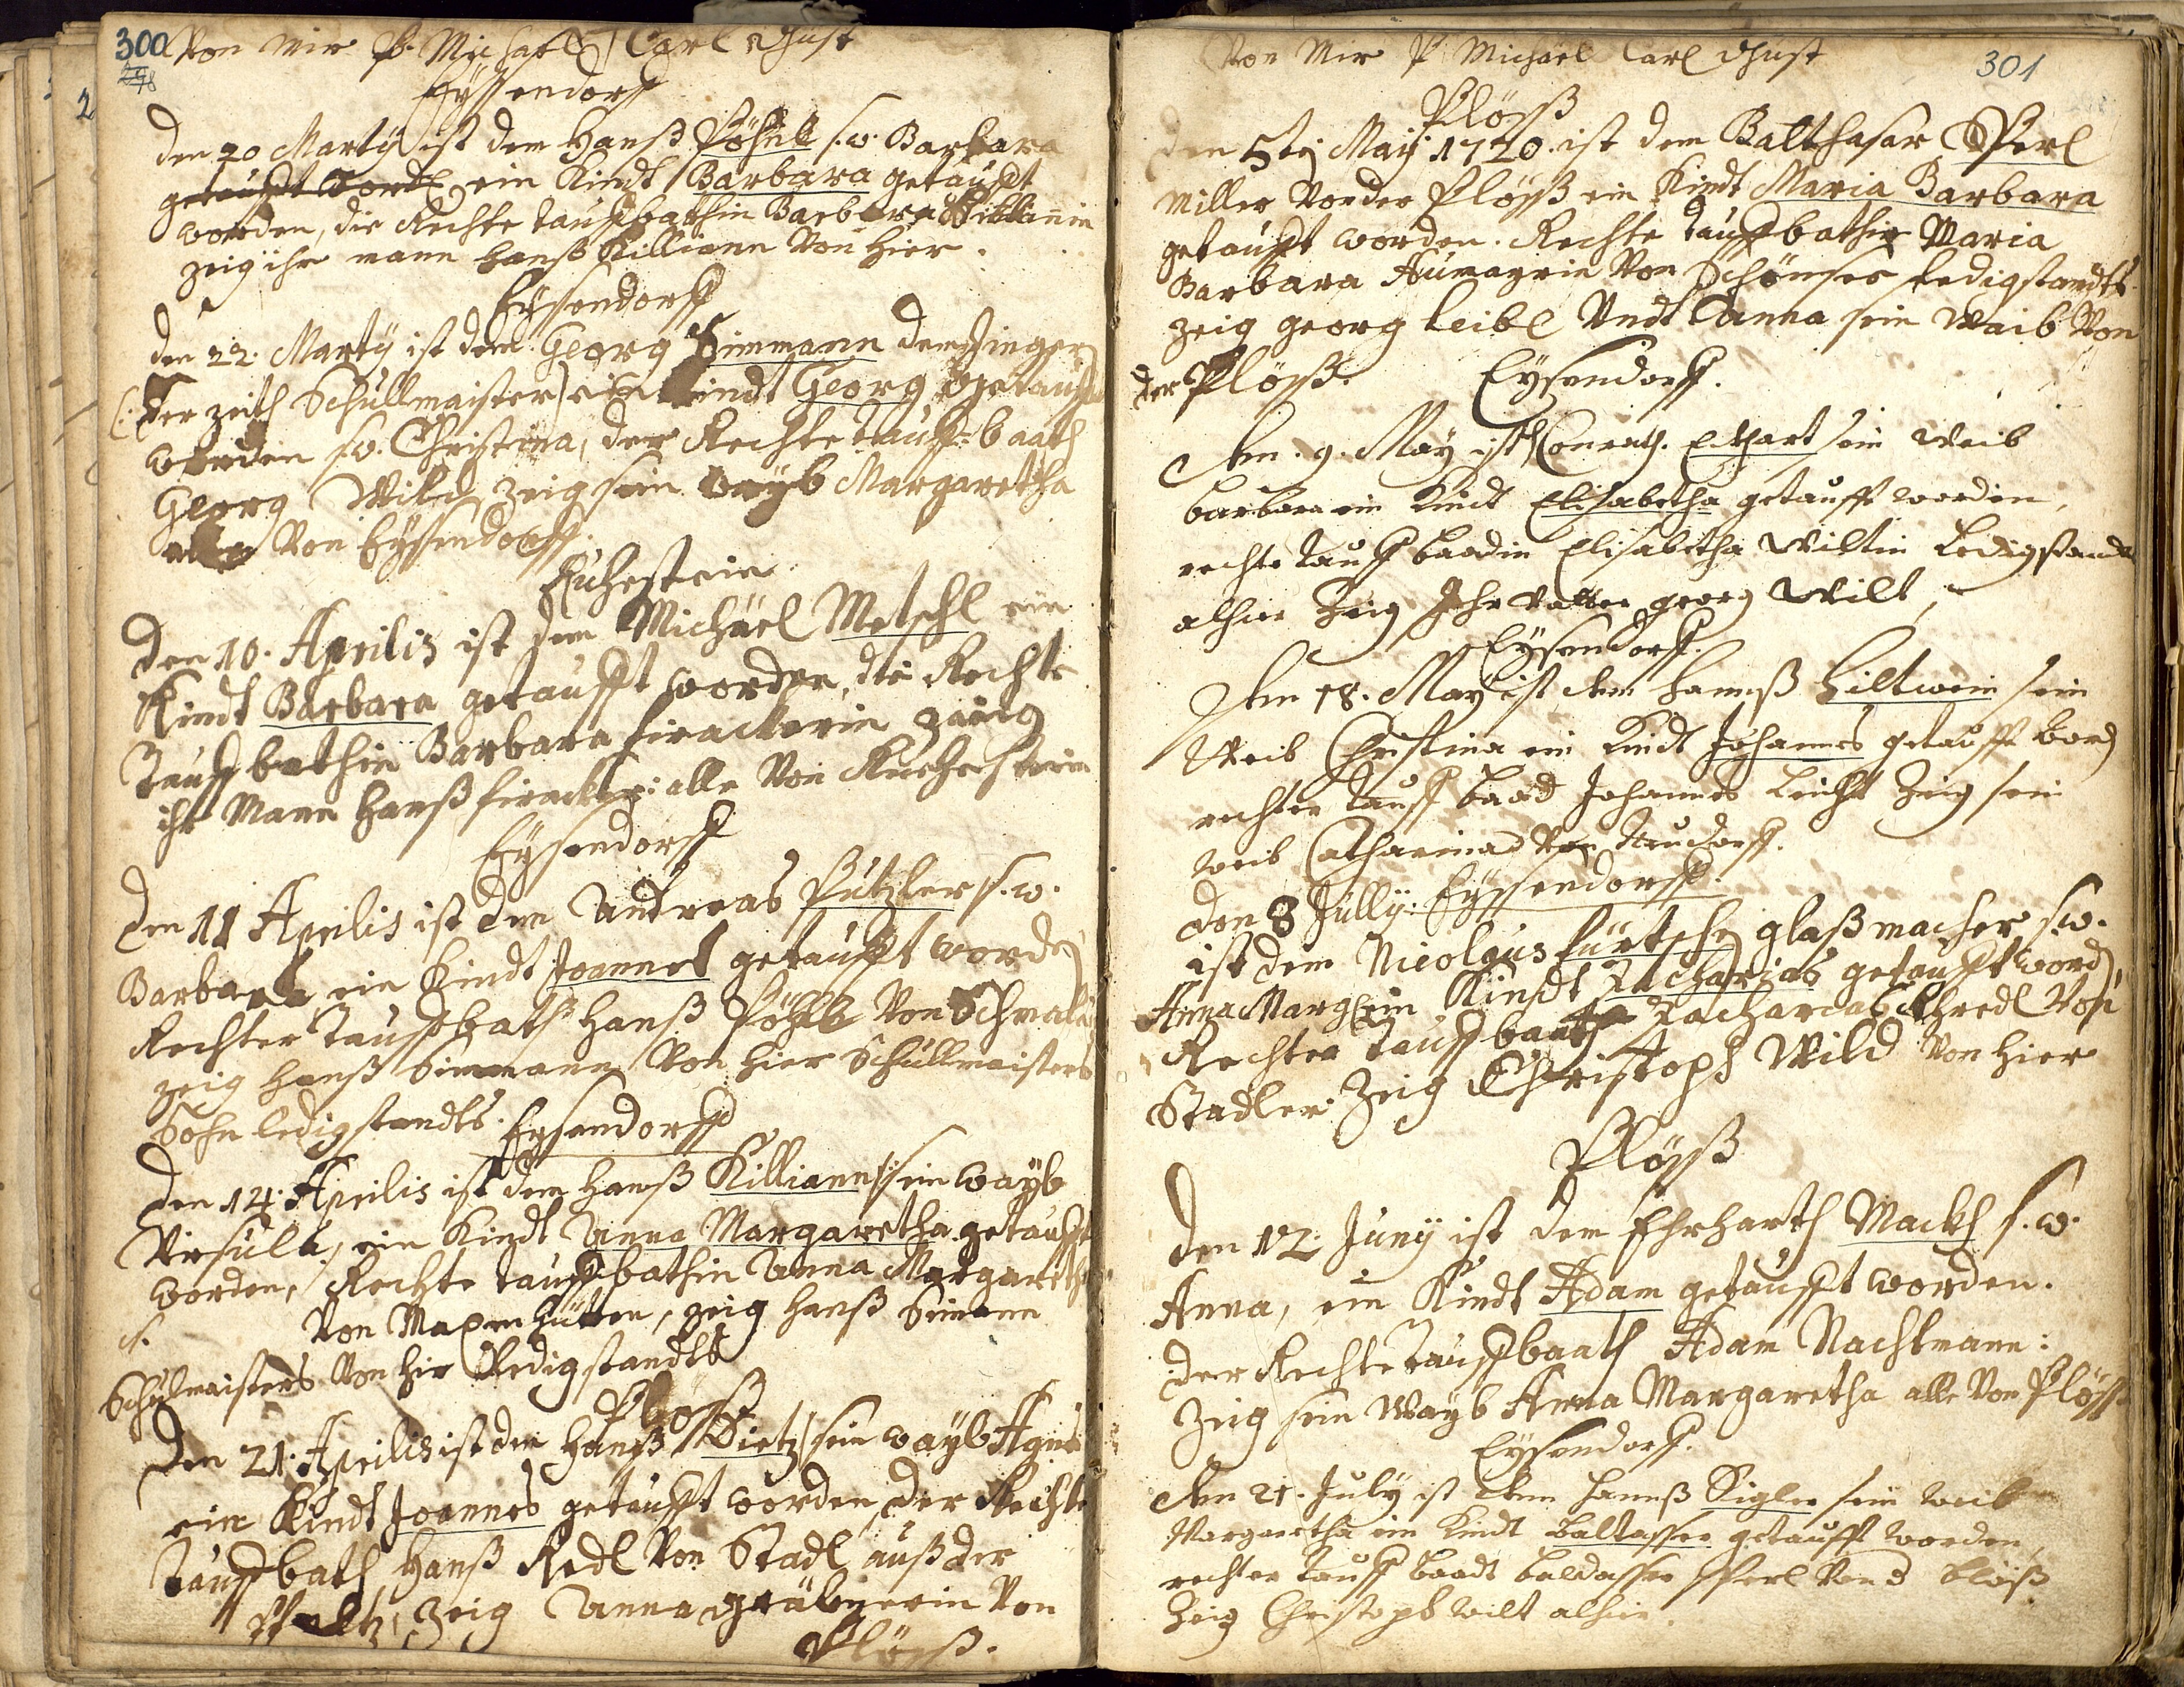 300 Von mir P. Michael Carl Just
298
Eyssendorff
den 20 Marty ist dem Hanß Pöhnl s.w. Barbara
getaufft word ein Kindt Barbara getaufft
worden, die Rechte tauffbathin Barbara Killianin
zeig ihr mann Hanß Killiann Von hier.
Eyssendorff
den 22. Marty ist dem Georg Simmann dem Jinger
(: der zeith Schullmaister) ein Kindt Georg getaufft
worden s.w. Christina, der Rechte tauff-baath
Georg Wild zeig sein wayb Margaretha
alle Von Eyssendorff.
Ruhestein
Den 10. Aprilis ist dem Michäel Motschl ein
Kindt Barbara getaufft worden, die Rechte
Tauffbathin Barbara zaug
ihr Mann Hanß alle Von Ruehestein
Eyssendorff
den 11 Aprilis ist dem Andreas Putzler s.w.
Barbara ein Kindt Joannes getaufft worden
Rechter Tauffbath Hanß Von
zeig Hanß Simmann Von hier Schullmaisters
Sohn ledigstandts. Eyssendorff
den 14. Aprilis ist dem Hanß Killiann sein wayb
Virsula, ein Kindt Anna Margaretha getaufft
worden, Rechte tauffbathin Anna Margaretha
N. Von Maxenhütten, zeig Hanß Simann
Schulmaisters Von hir Ledigstandts
Plöss
Den 21. Aprilis ist dem Hanß Dietz sein wayb Agnes
ein Kindt Joannes getaufft worden, der Rechte
Tauffbath Hanß Redl Von Stadl auß der
Pfaltz, zeig Anna Von
Plöß.
Von Mir P Michael Carl Just 301
Plöß
den 5ten May 1720. ist dem Balthasar Sperl
Miller Von der Plöß ein Kindt Maria Barbara
getaufft worden. Rechte tauffbathin Maria
Barbara Von Schönsee ledigstandts
zeig georg Leibl Undt Anna sein Waib Von
der Plöß. Eyssendorff.
Den. 9. May ist Conrath. Ekhart sein Weib
barbara ein Kindt Elisabetha getaufft worden,
rechte tauff baadin Elisabetha Wiltin Ledigstandt
alhier Zeig Jhr Vatter georg Wilt,
Eyssendorff.
Den 18. May ist dem Hannß Hiltwein sein
Weib Christina ein Kindt Johannes getaufft word
rechter tauff baad Johannes Leicht Zeig sein
weib Catharina Von Neudorff.
den 8 Jully: Eyssendorff.
ist dem Nicolaus fürtsch glaßmacher s.w.
Anna Marg ein Kindt Zacharias getaufft word,
Rechter tauffbaath Zacharias Von
Stadler. Zeig Christoph Wild Von hier
Plöß
den 12. Juny ist dem Ehrharth Mackh s.w.
Anna, ein Kindt Adam getaufft worden.
der Rechte Tauffbaath Adam Nachtmann:
Zeig sein Wayb Anna Margaretha alle Von Plöß
Eyssendorff.
Den 21. July ist dem Hannß Sigler sein weib
Margaretha ein Kindt Baltasser getaufft worden,
rechter tauff baadt baldasser Sperl Von d blöß
Zeig Christoph Wilt alhier.